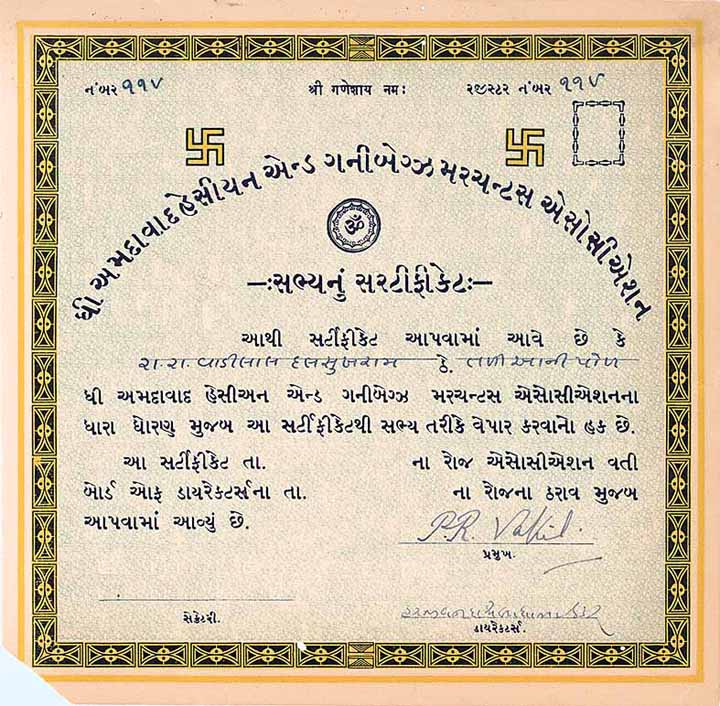 નંબર ૧૧૪ શ્રી ગણેશાય નમ: રજીસ્ટર નંબર ૧૧૪
ધી અમદાવાદ હેસીયન એન્ડ ગનીબેગ્ઝ મરચન્ટસ એસોસીએશન
ૐ
—:સભ્યનું સરટીફીકેટ:—
આથી સર્ટીફીકેટ આપવામાં આવે છે કે
રા.રા. વાડીલાલ દલસુખરામ ઠે. તળીઆની પોળ
ધી અમદાવાદ હેસીઅન એન્ડ ગનીબેગ્ઝ મરચન્ટસ એસોસીએશનના
ધારા ધોરણ મુજબ આ સર્ટીફીકેટથી સભ્ય તરીકે વેપાર કરવાનો હક છે.
આ સર્ટીફીકેટ તા. ના રોજ એસોસીએશન વતી
બોર્ડ ઓફ ડાયરેકટર્સના તા. ના રોજના ઠરાવ મુજબ
આપવામાં આવ્યું છે.
P.R. Vakil.
પ્રમુખ.
સેક્રેટરી.
ડાયરેકટર્સ.